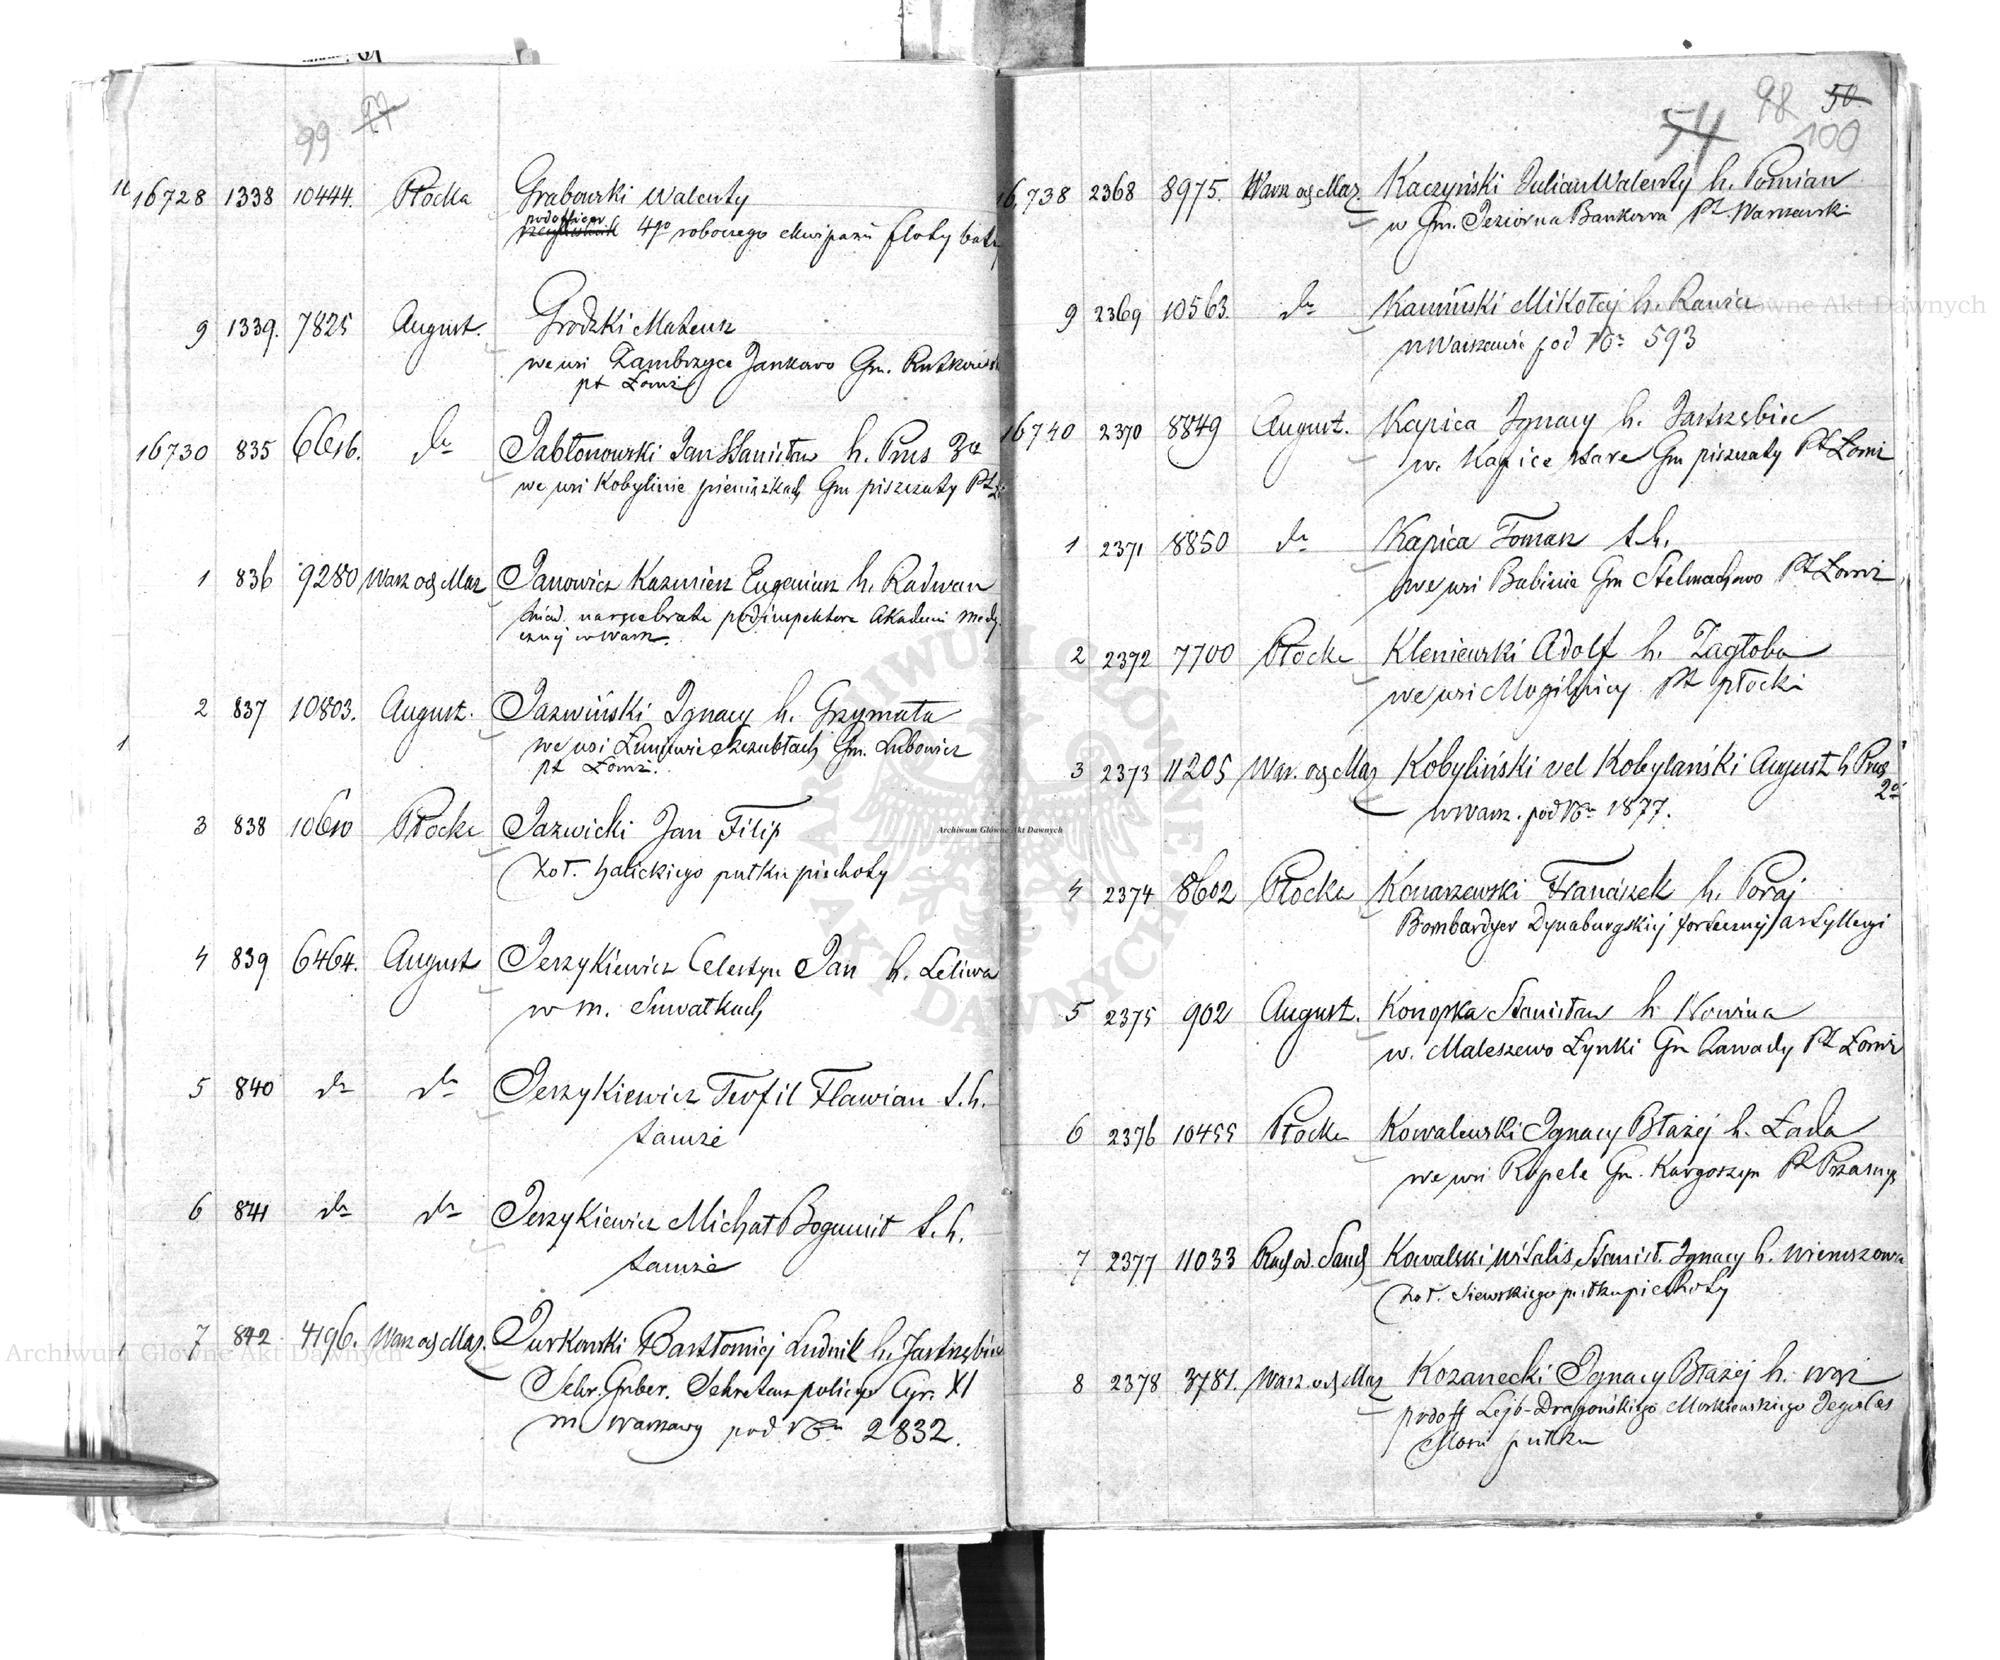 99 47
16728 1338 10444. Płocka Grabowski Walenty
podoficer
4go roboczego ekwipażu floty bałt
9 1339. 7825 August. Grodzki Mateusz
we wsi Zambrzyce Jankowo Gm. Rutkowsk
pt Łomż
16730 835 6616. do Jabłonowski Jan Stanisław h. Prus 3o
we wsi Kobylinie pieniążkach Gm piszczaty Pt Ł
1 836 9280 Warz og Maz Janowicz Kazimierz Eugeniusz h. Radwan
podinspektora Akademii medy
cznej w Warsz.
2 837 10803. August. Jazwiński Ignacy h. Grzymała
we wsi Łuniewie Gm. Lubowicz
pt Łomż.
3 838 10610 Płocka Jazwicki Jan Filip
żoł. halickiego pułku piechoty
4 839 6464. August Jerzykiewicz Celestyn Jan h. Leliwa
w m. Suwałkach
5 840 do do Jerzykiewicz Teofil Flawian t. h.
tamże
6 841 do do Jerzykiewicz Michał Bogumił t. h.
tamże
7 842 4196. Warz og Maz. Jurkowski Bartłomiej Ludwik h. Jastrzębiec
Sekr. Guber. Sekretarz policyi Cyr. XI
m Warszawy pod No 2832.
98 50
54 100
16738 2368 8975. Warz og Maz. Kaczyński Julian Walenty h. Pomian
w Gm. Jeziorna Bankowa Pt. Warszawski
9 2369 10563. do Kamiński Mikołaj h. Rawicz
w Warszawie pod No 593
16740 2370 8849 August. Kapica Ignacy h. Jastrzębiec
w. Kapice stare Gm piszczaty Pt Łomż
1 2371 8850 do Kapica Tomasz t. h.
we wsi Babinie Gm Stelmachowo Pt Łomż
2 2372 7700 Płocka Kleniewski Adolf h. Zagłoba
we wsi Mogilnicy Pt płocki
3 2373 11205 War. og Maz Kobyliński vel Kobylański August h Prus
2o
w Warsz. pod No 1877.
4 2374 8602 Płocka Konarzewski Franciszek h. Poraj
Bombardyer Dynaburgskiej fortecznej artylleryi
5 2375 902 August. Konopka Stanisław h Nowina
w. Maleszewo Łynki Gm Zawady Pt Łomż
6 2376 10455 Płocka Kowalewski Ignacy Błażej h. Łada
we wsi Ropele Gm. Kargoszyn Pt Przasnys
7 2377 11033 Rach od. Sand Kowalski Witalis Stanisł. Ignacy h. Wieruszowa
żoł. Siewskiego pułku piechoty
8 2378 3781. Warz. og Maz Kozanecki Ignacy Błażej h. wąż
podoff Lejb-Dragońskiego Moskiewskiego Jego Ces
Mości pułku
Archiwum Główne Akt Dawnych
Archiwum Główne Akt Dawnych
Archiwum Główne Akt Dawnych
ARCHIWUM GŁÓWNE
AKT DAWNYCH